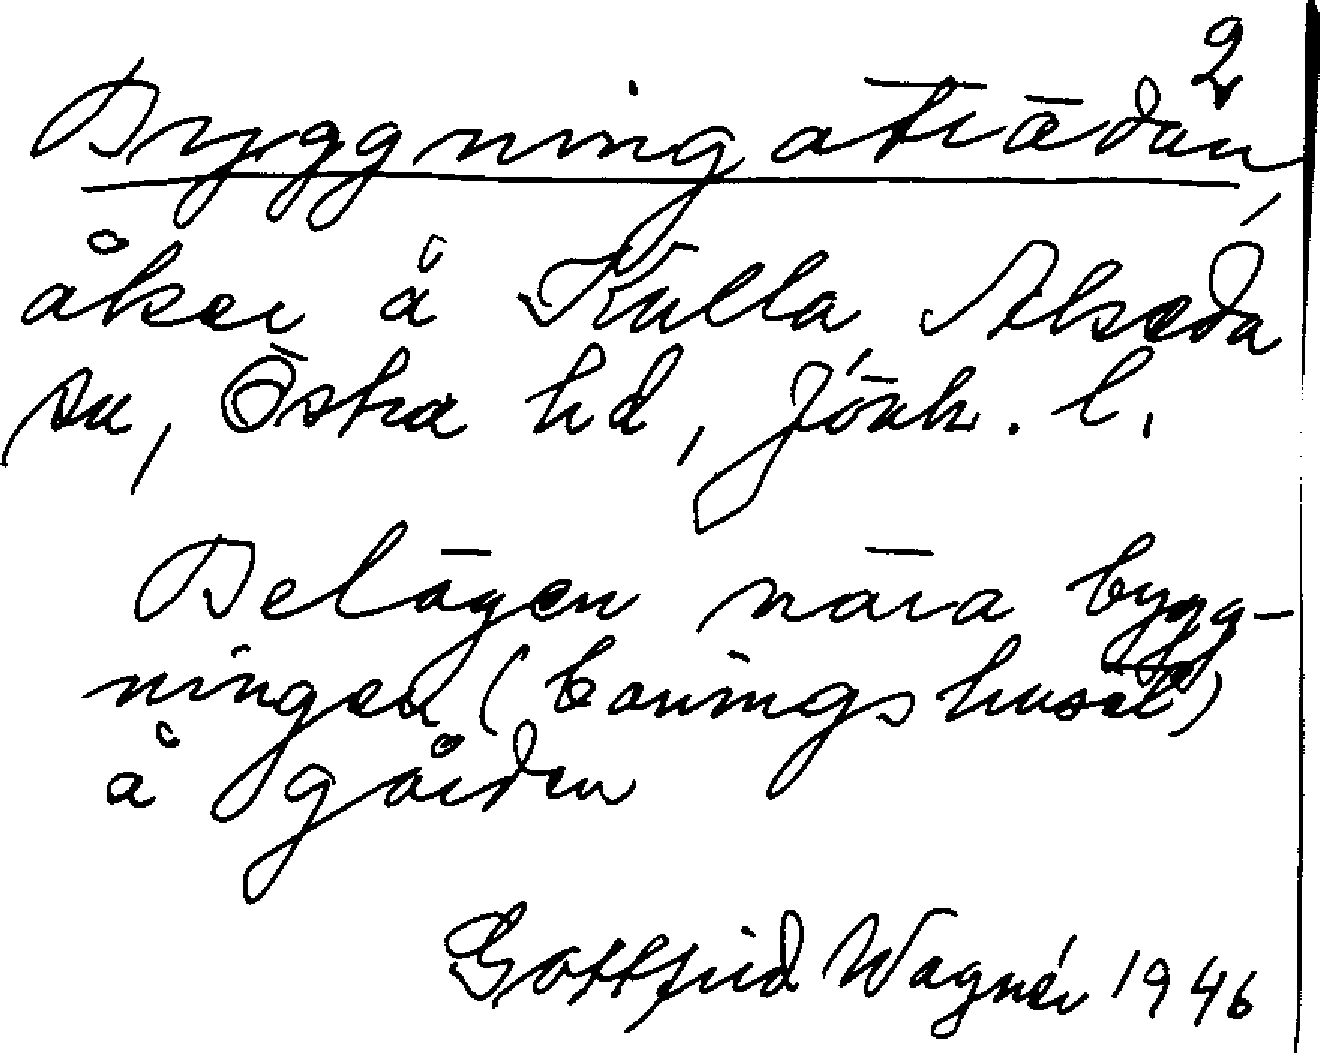 2
Byggningaträdan,
åker å Kulla, Alseda
sn, Östra hd, Jönk. l.
Belägen nära bygg-
ningen (boningshuset)
å gården
Gottfrid Wagnér 1946